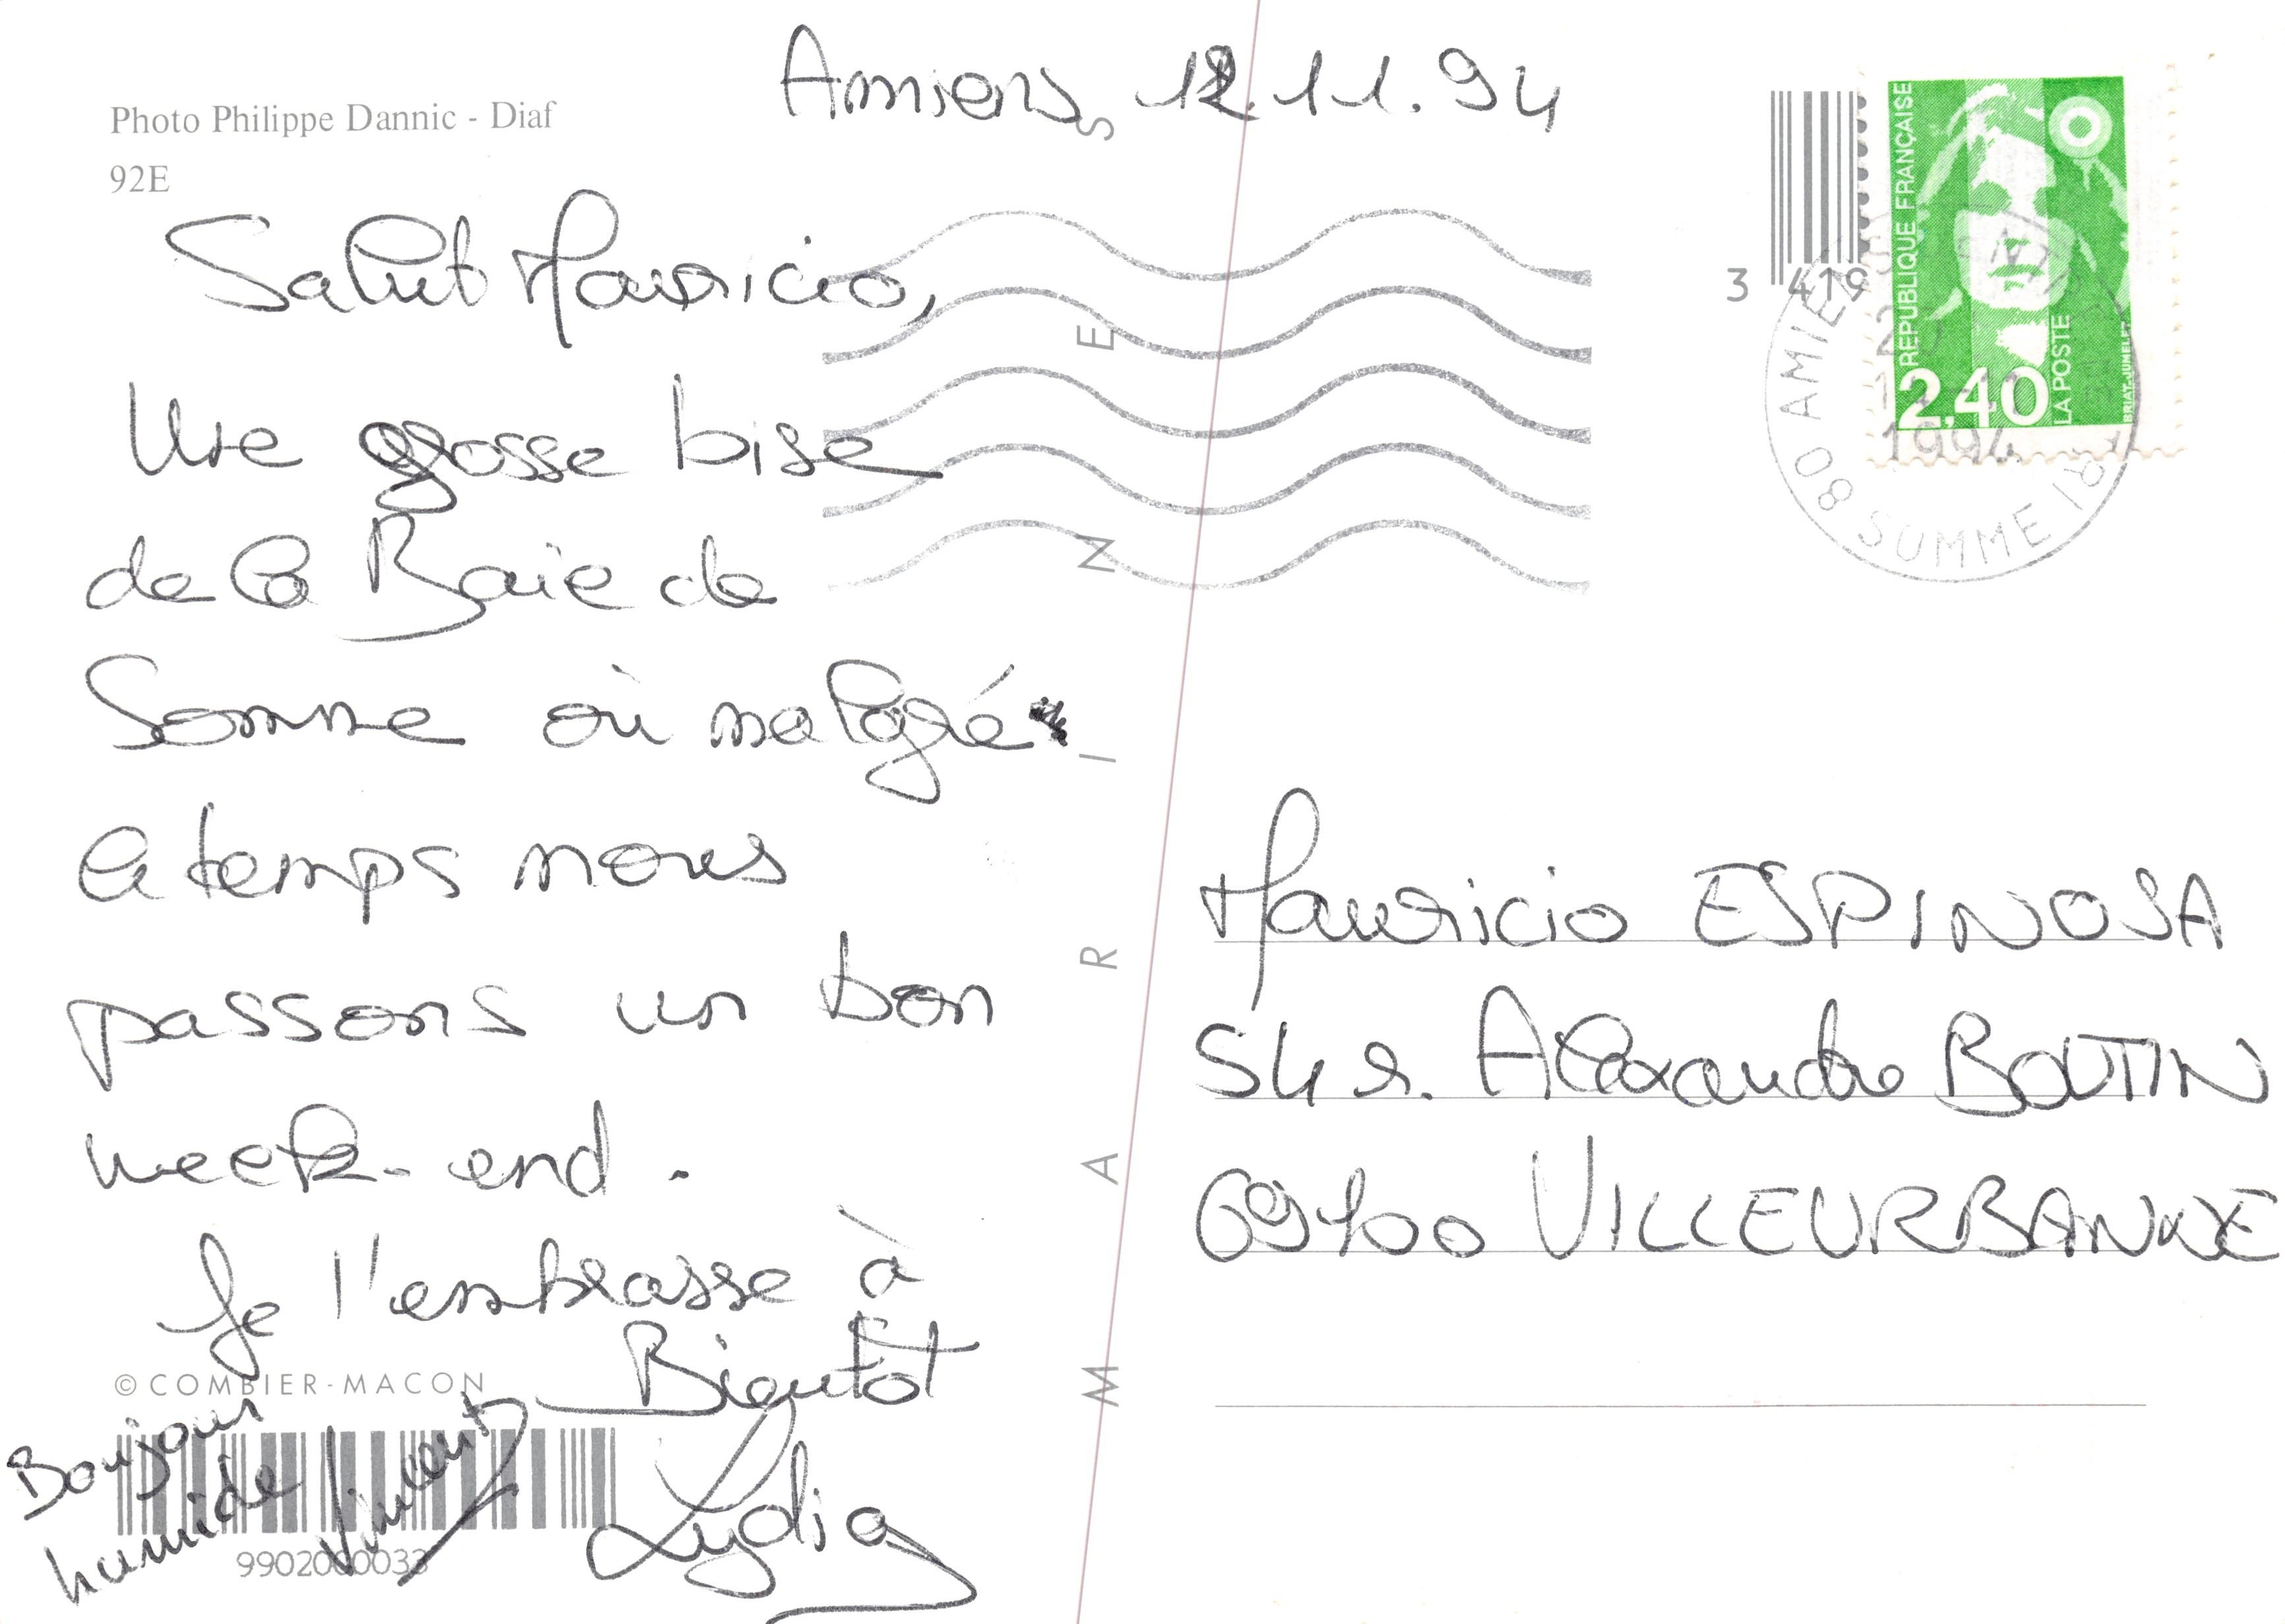 Amiens 12.11.94
Photo Philippe Dannic - Diaf
92E
Salut Mauricio,
Une grosse bise
de la Baie de
Somme où malgré
le temps nous
passons un bon
week-end.
Je t'embrasse à
Bientôt
Lydia
Bonjour
humide
Vincent
© COMBIER-MACON
9902000033
MARINES
3 419
REPUBLIQUE FRANÇAISE
2,40
LA POSTE
BRIAT-JUMELET
80 AMIENS
SOMME
1994
Mauricio ESPINOSA
54 r. Alexandre BOUTIN
69100 VILLEURBANNE